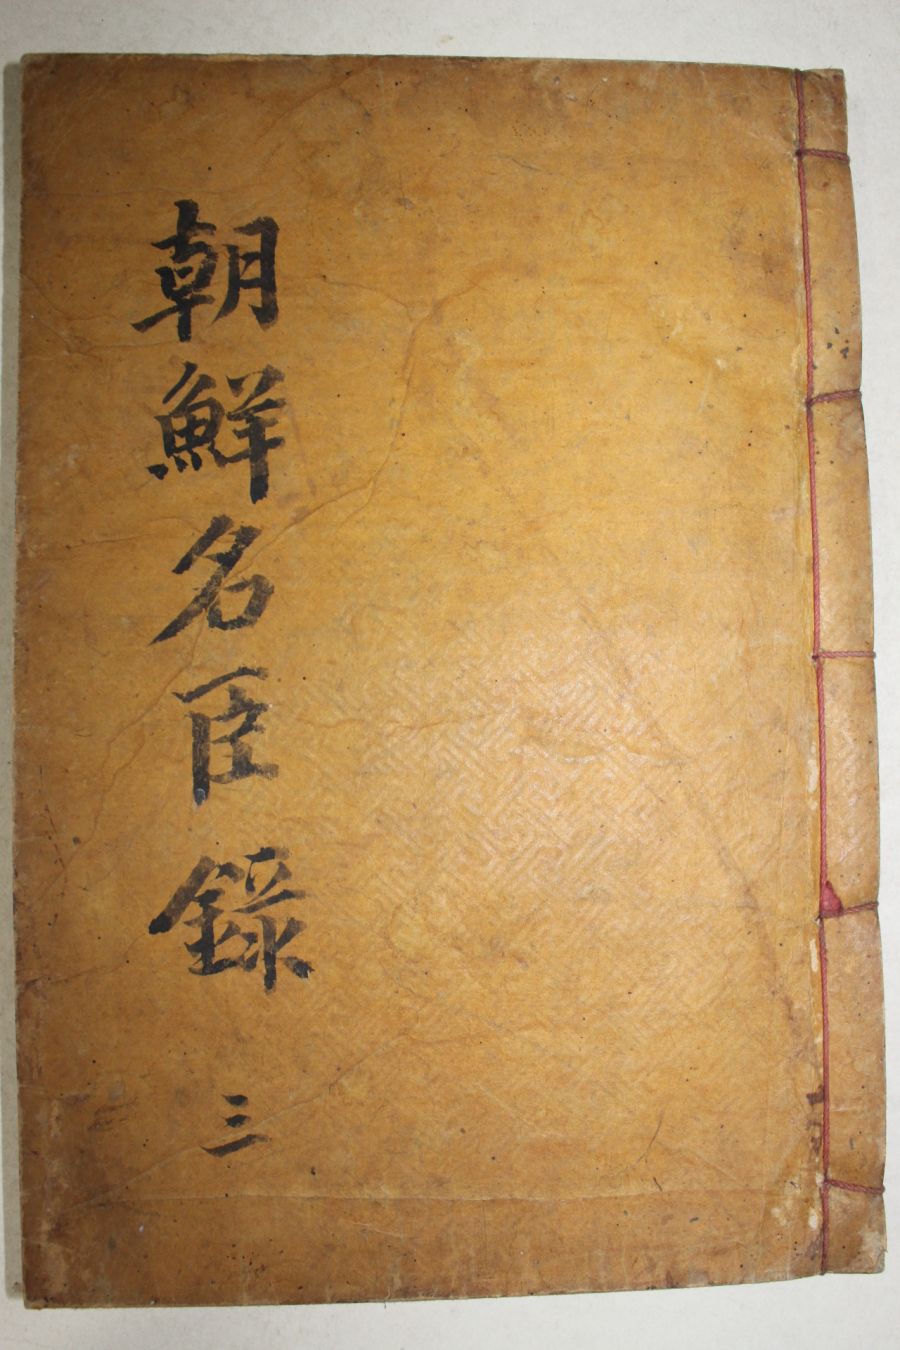 朝鮮名臣錄
三